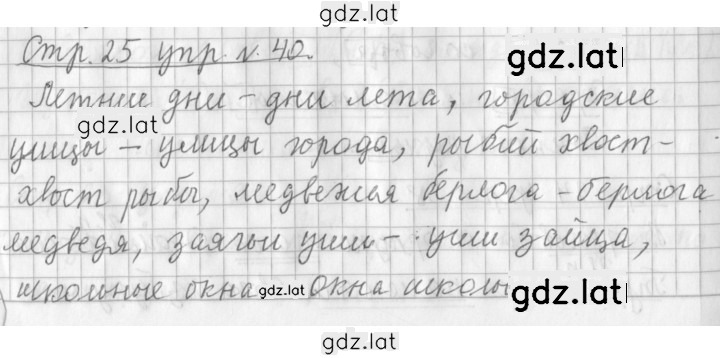 gdz.lat
Стр. 25 упр. N. 40.
gdz.lat
Летние дни – дни лета, городские
gdz.lat
улицы – улицы города, рыбий хвост –
хвост рыбы, медвежья берлога – берлога
медведя, заячьи уши – уши зайца,
школьные окна gdz.lat окна школы gdz.lat
gdz.lat